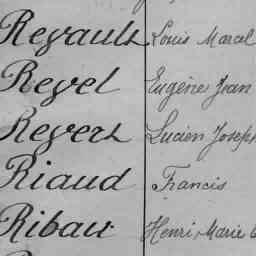 Regault Louis Marcel
Regel Eugène Jean
Regert Lucien Joseph
Riaud Francis
Ribau Henri, Marie